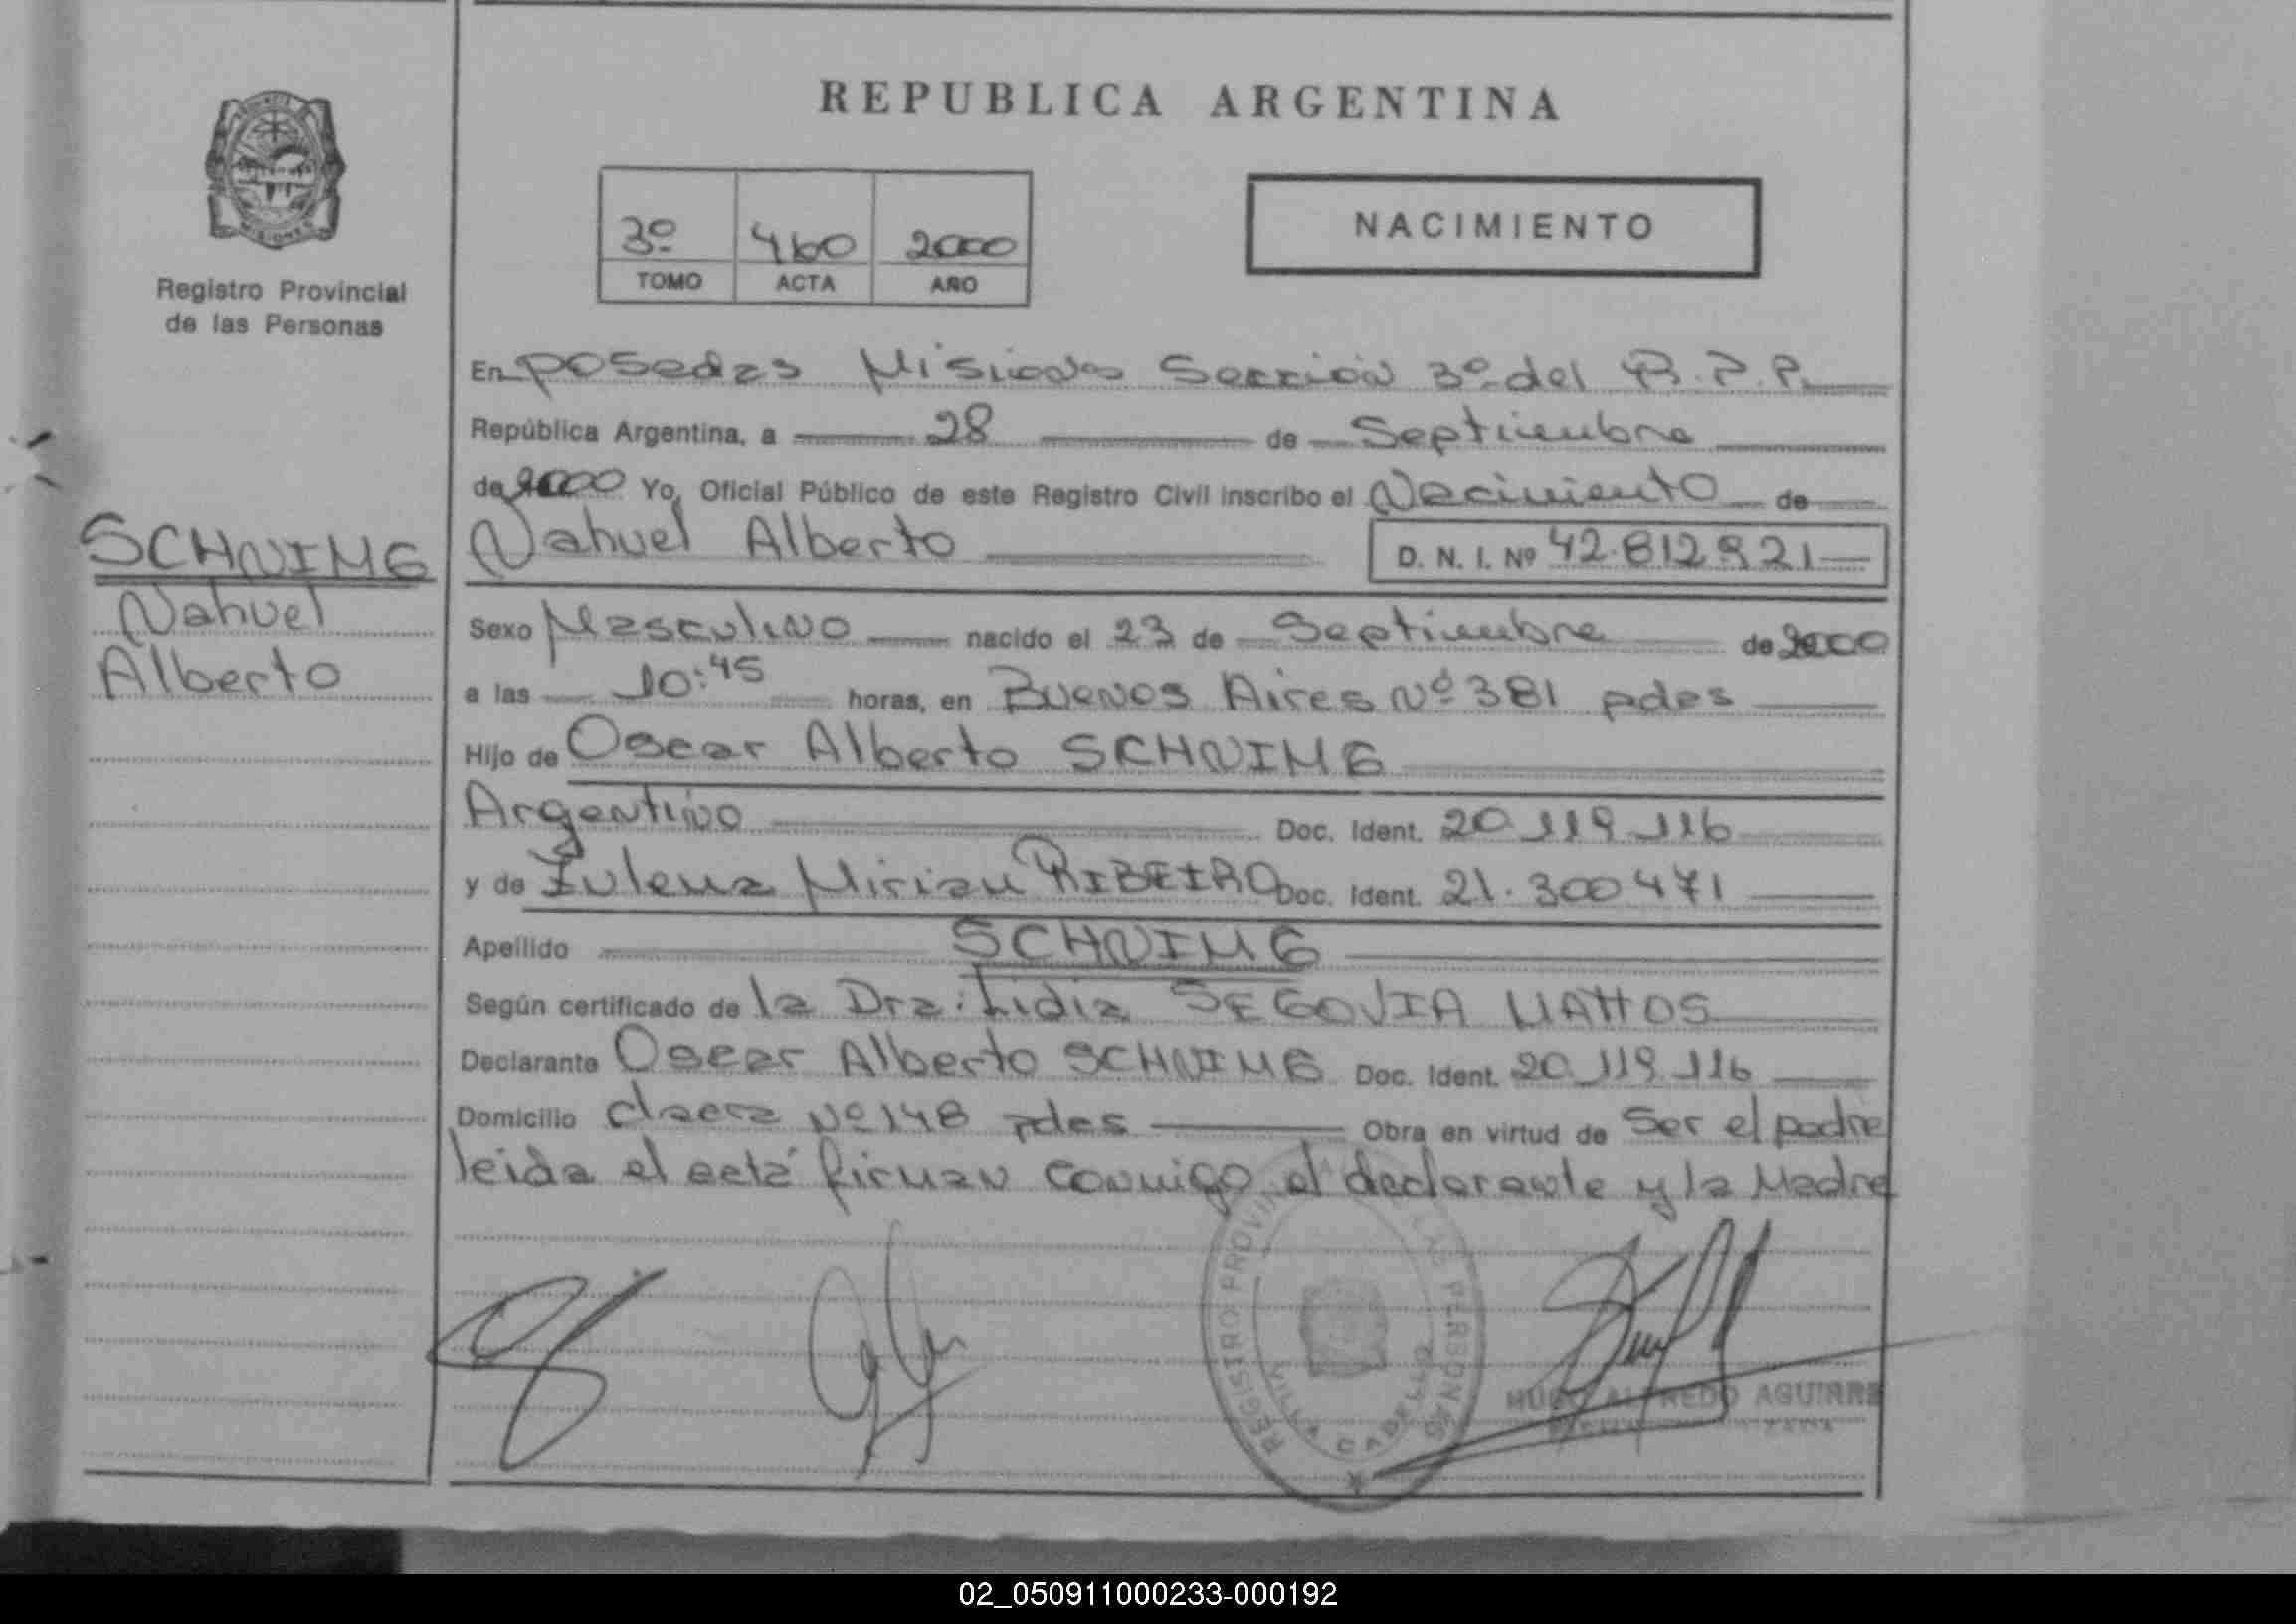 REPUBLICA ARGENTINA
3º 460 2000
TOMO ACTA AÑO
NACIMIENTO
Registro Provincial
de las Personas
SCHNIMG
Nahuel
Alberto
En posadas Misiones Sección 3º del R.P.P.
República Argentina, a 28 de Septiembre
de 2000 Yo, Oficial Público de este Registro Civil inscribo el Nacimiento de
Nahuel Alberto D. N. I. Nº 42.812.921
Sexo Masculino nacido el 23 de Septiembre de 2000
a las 10:45 horas, en Buenos Aires Nº 381 pdas
Hijo de Oscar Alberto SCHNIMG
Argentino Doc. Ident. 20.119.116
y de Zulema Mirian RIBEIRO Doc. Ident. 21.300471
Apellido SCHNIMG
Según certificado de la Dra: Lidia SEGOVIA MATTOS
Declarante Oscar Alberto SCHNIMG Doc. Ident. 20.119.116
Domicilio Nº 148 pdas Obra en virtud de Ser el padre
leida el acta firman conmigo el declarante y la Madre
REGISTRO PROVINCIAL DE LAS PERSONAS
VILLA CABELLO
HUGO ALFREDO AGUIRRE
02_050911000233-000192